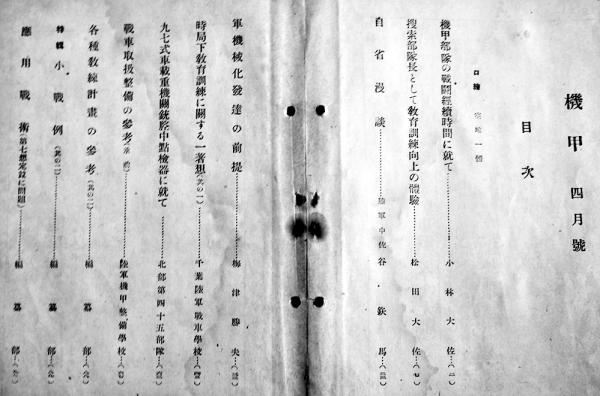 機甲 四月號
目次
口繪
機甲部隊の戰鬪經續時間に就て……小林大佐…(二)
搜索部隊長として教育訓練向上の體驗……松田大佐…(七)
自省漫談……陸軍中佐 谷鉄馬…
軍機械化發達の前提……梅津勝夫…
時局下教育訓練に關する一著想(其の一)……千葉陸軍戰車學校…
九七式車載重機關銃腔中點檢器に就て……北部第四十五部隊…
戰車取扱整備の參考……陸軍機甲整備學校…
各種教練計畫の參考(其の二)……編纂部…
特輯 小戰例(其の二)……編纂部…
應用戰術……編纂部…